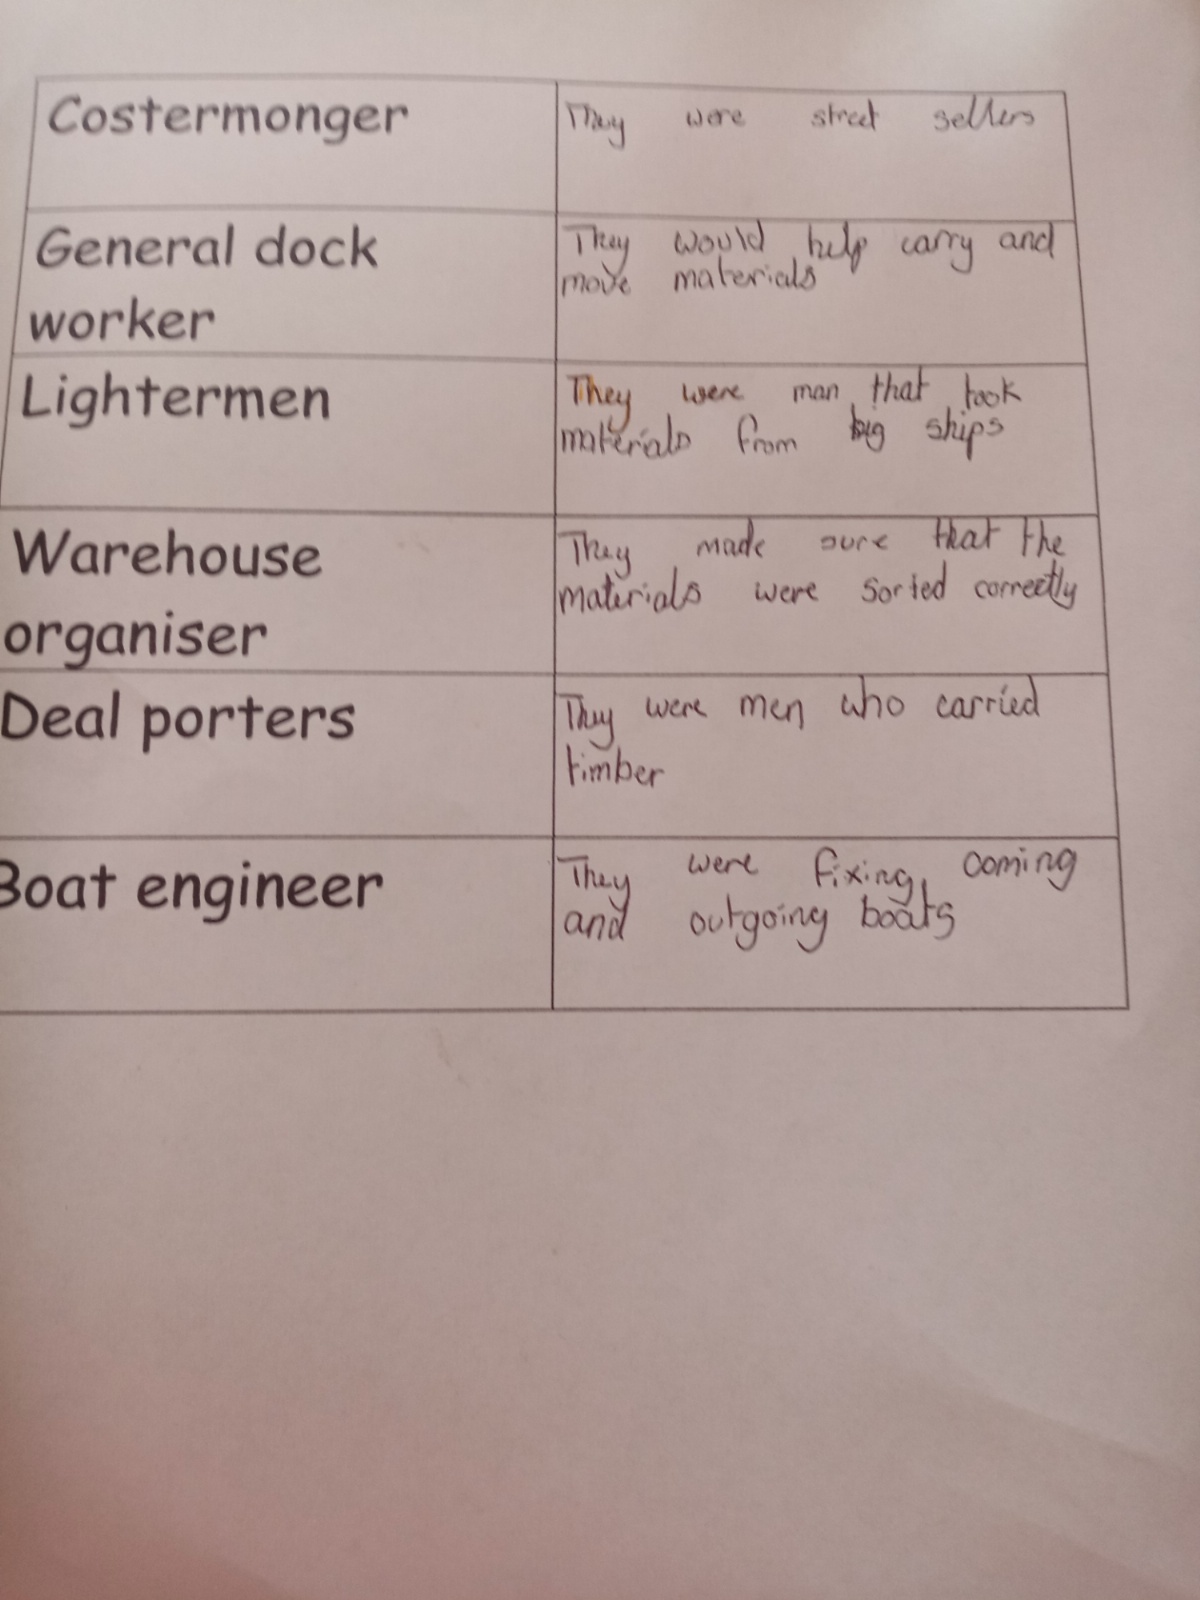 Costermonger
They were street sellers
General dock
worker
They would help carry and
move materials
Lightermen
They were man that took
materials from big ships
Warehouse
organiser
They made sure that the
materials were sorted correctly
Deal porters
They were men who carried
timber
Boat engineer
They were fixing coming
and outgoing boats